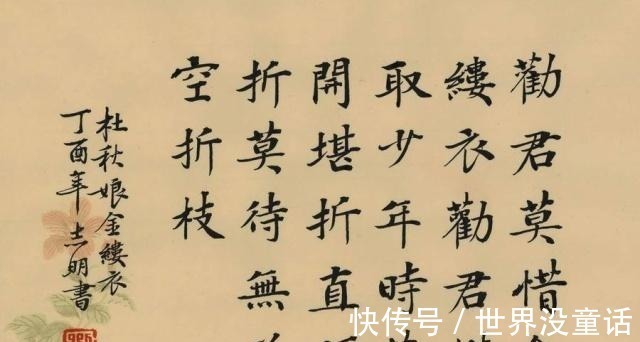 勸君莫惜
縷衣勸君
取少年時
開堪折直
折莫待無
空折枝
杜秋娘金縷衣
丁酉年志明書
快传号 / 世界没童话